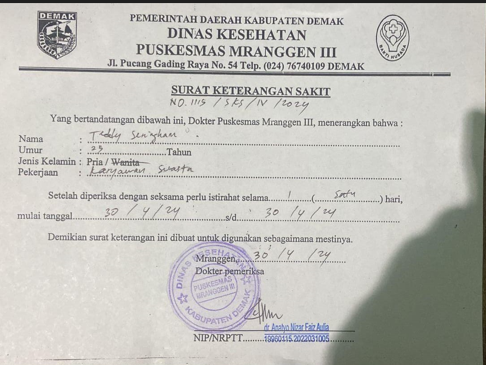 DEMAK
PEMERINTAH DAERAH KABUPATEN DEMAK
DINAS KESEHATAN
PUSKESMAS MRANGGEN III
Jl. Pucang Gading Raya No. 54 Telp. (024) 76740109 DEMAK
BAKTI HUSADA
SURAT KETERANGAN SAKIT
NO. 1115 / SKS / IV / 2024
Yang bertandatangan dibawah ini, Dokter Puskesmas Mranggen III, menerangkan bahwa :
Nama : Teddy
Umur : 25 Tahun
Jenis Kelamin : Pria / Wanita
Pekerjaan : Karyawan Swasta
Setelah diperiksa dengan seksama perlu istirahat selama 1 ( Satu ) hari,
mulai tanggal 30 / 4 / 24 s/d 30 / 4 / 24
Demikian surat keterangan ini dibuat untuk digunakan sebagaimana mestinya.
Mranggen, 30 / 4 / 24
Dokter pemeriksa
DINAS KESEHATAN
PUSKESMAS
MRANGGEN III
KABUPATEN DEMAK
dr. Anatyo Nizar Faiz Aulia
NIP/NRPTT 19960315 2022031005